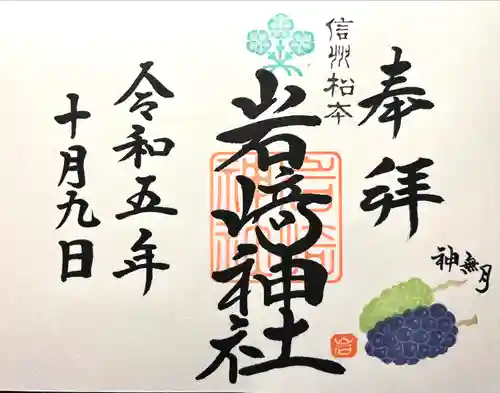 奉拝
神無月
信州松本
岩﨑神社
岩崎神社
令和五年
十月九日
岩